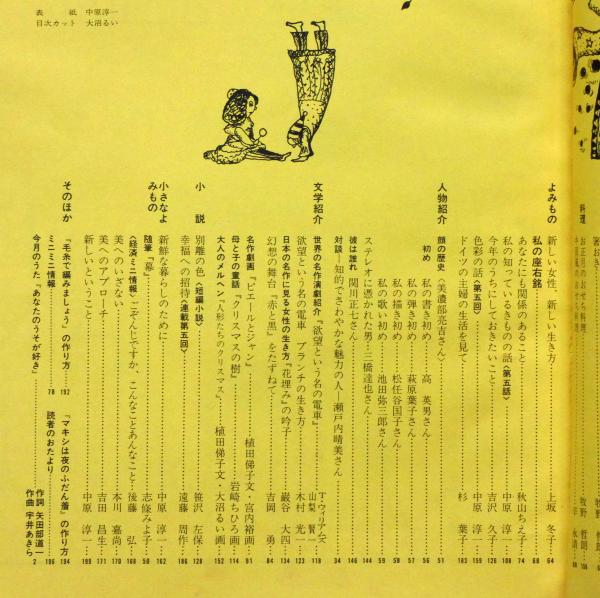 表紙 中原淳一
目次カット 大沼るい
料理
お正月のおせち料理
よみもの
新しい女性、新しい生き方 上坂 冬子 64
私の座右銘 68
あなたにも関係のあること 秋山ちえ子 74
私の知っているきものの話〈第五話〉 中原 淳一 108
今年のうちにしておきたいこと 吉沢 久子 126
色彩の話〈第五回〉 中原 淳一 159
ドイツの主婦の生活を見て 杉 葉子 183
人物紹介
顔の歴史〈美濃部亮吉さん〉 51
初め
私の書き初め 高 英男さん 56
私の弾き初め 萩原葉子さん 57
私の描き初め 松任谷国子さん 58
私の歌い初め 池田弥三郎さん 59
ステレオに憑かれた男 三橋達也さん 144
彼は誰れ 関川正七さん 146
対談―知的でさわやかな魅力の人―瀬戸内晴美さん 34
文学紹介
世界の名作演劇紹介『欲望という名の電車』 T・ウィリアムズ 山梨 賢一 118
欲望という名の電車 ブランチの生き方 木村 光一 123
日本の名作に見る女性の生き方『花埋み』の吟子 巌谷 大四 134
幻想の舞台『赤と黒』をたずねて 吉岡 勇 84
名作劇画『ピエールとジャン』 植田俤子文・宮内裕画 91
母と子の童話『クリスマスの樹』 岩崎ちひろ画 114
大人のメルヘン『人形たちのクリスマス』 植田俤子文・大沼るい画 152
小説
別離の色〈短編小説〉 笹沢 左保 128
幸福への招待〈連載第五回〉 遠藤 周作 186
小さなよみもの
新鮮な暮らしのために 中原 淳一 162
随筆『幕』 志條みよ子 50
〈経済ミニ情報〉ごぞんじですか、こんなことあんなこと 後藤 弘 168
美へのいざない 本川 嘉尚 170
美へのアプローチ 吉田 昌生 171
新しいということ 中原 淳一 199
そのほか
『毛糸で編みましょう』の作り方 192
『マキシは夜のふだん着』の作り方 194
ミニミニ情報 78
読者のおたより 196
今月のうた『あなたのうそが好き』 作詞 矢田部道一 作曲 宇井あきら 2